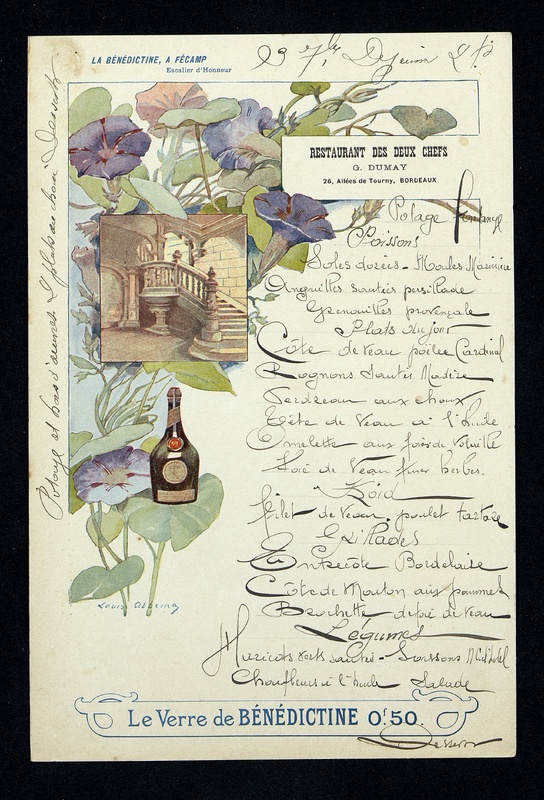 LA BÉNÉDICTINE, A FÉCAMP
Escalier d'Honneur
29 7bre Déjeuner 2f
RESTAURANT DES DEUX CHEFS
G. DUMAY
26, Allées de Tourny, BORDEAUX
Potage
Poissons
Soles dorées - Moules Marinière
Anguilles sautées persillade
Grenouilles provençale
Plats du jour
Côte de veau poêlée Cardinal
Rognons sautés Madère
Perdreau aux choux
Tête de Veau à l'huile
Omelette aux foies de volaille
Foie de Veau fines herbes.
Froid
filet de veau. poulet tartare
Grillades
Entrecôte Bordelaise
Côte de Mouton aux pommes
Brochette de foie de veau
Légumes
Haricots verts sautés - Soissons M. d'hôtel
Choufleurs à l'huile Salade
Dessert
Potage et hors d'œuvres 2 plats au choix Desserts
LOUISE ABBEMA
Le Verre de BÉNÉDICTINE 0f.50.